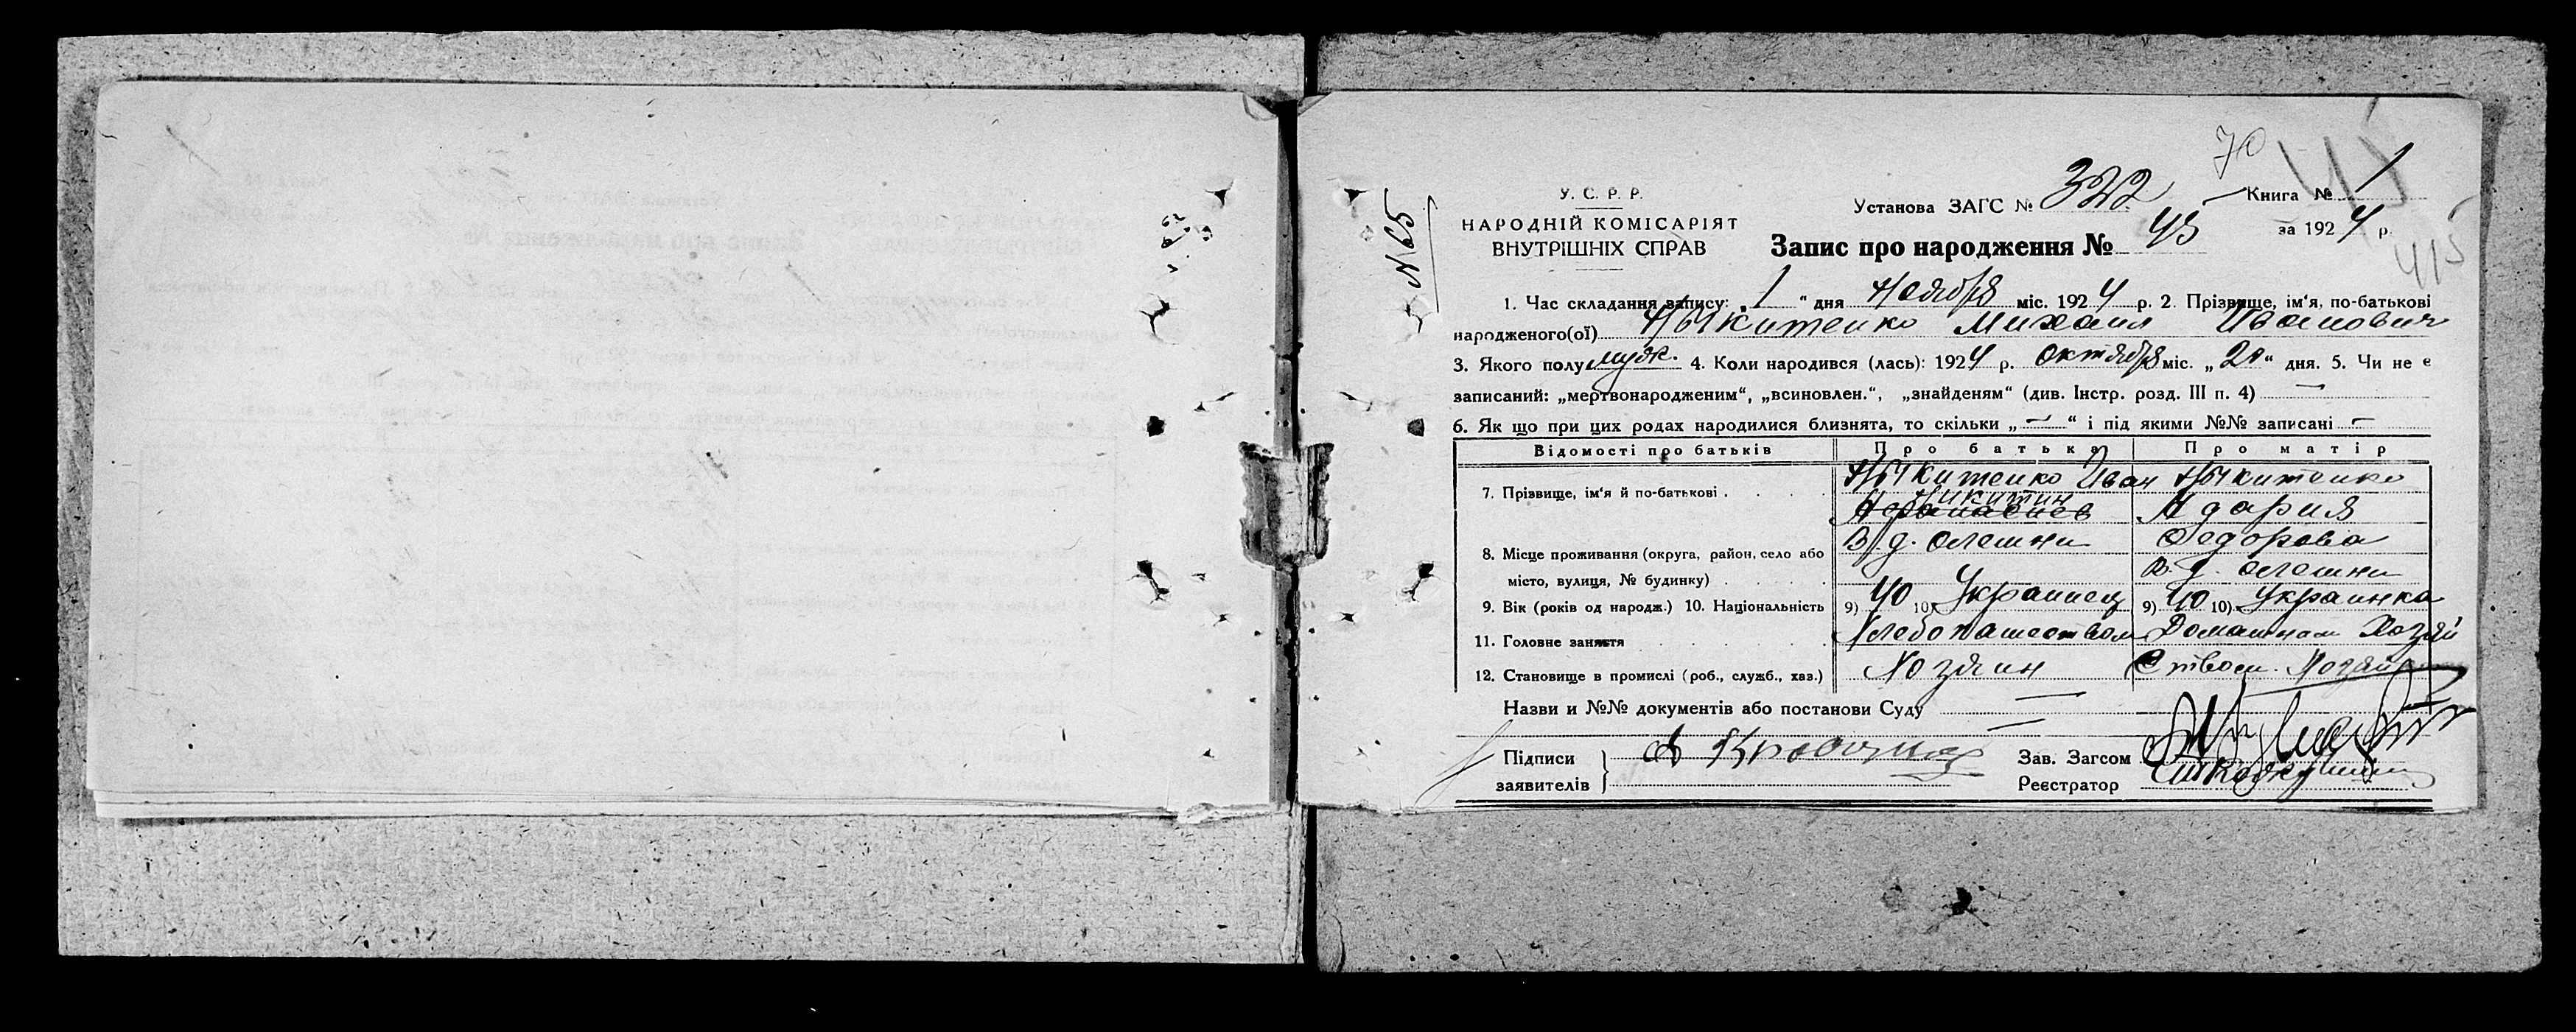 № 65
70
415
У. С. Р. Р.
Установа ЗАГС № 322 Книга № 1
НАРОДНІЙ КОМІСАРІЯТ
ВНУТРІШНІХ СПРАВ
Запис про народження № 45 за 1924 р.
415
1. Час складання запису: „1“ дня Ноября міс. 1924 р. 2. Прізвище, ім‘я, по-батькові
народженого(ої) Ныкитенко Михаил Иванович
3. Якого полу муж. 4. Коли народився (лась): 1924 р. Октября міс. „20“ дня. 5. Чи не є
записаний: „мертвонародженим“, „всиновлен.“, „знайденям“ (див. Інстр. розд. III п. 4) —
6. Як що при цих родах народилися близнята, то скільки „—“ і під якими №№ записані —
Відомості про батьків Про батька Про матір
7. Прізвище, ім‘я й по-батькові . . . . Ныкитенко Иван Ныкитенко
Никитин
Адария
8. Місце проживання (округа, район, село або В/д. Олешни Федорова
місто, вулиця, № будинку) . . . . . В. д. Олешни
9. Вік (років од народж.) 10. Національність 9) 40 10) Украинец 9) 40 10) Украинка
11. Головне заняття . . . . . . Хлебопашеством Домашнам Хозяй
12. Становище в промислі (роб., служб., хаз.) Хозяин ством. Хозяйка
Назви и №№ документів або постанови Суду —
—
Підписи
заявителів
Зав. Загсом
Реєстратор